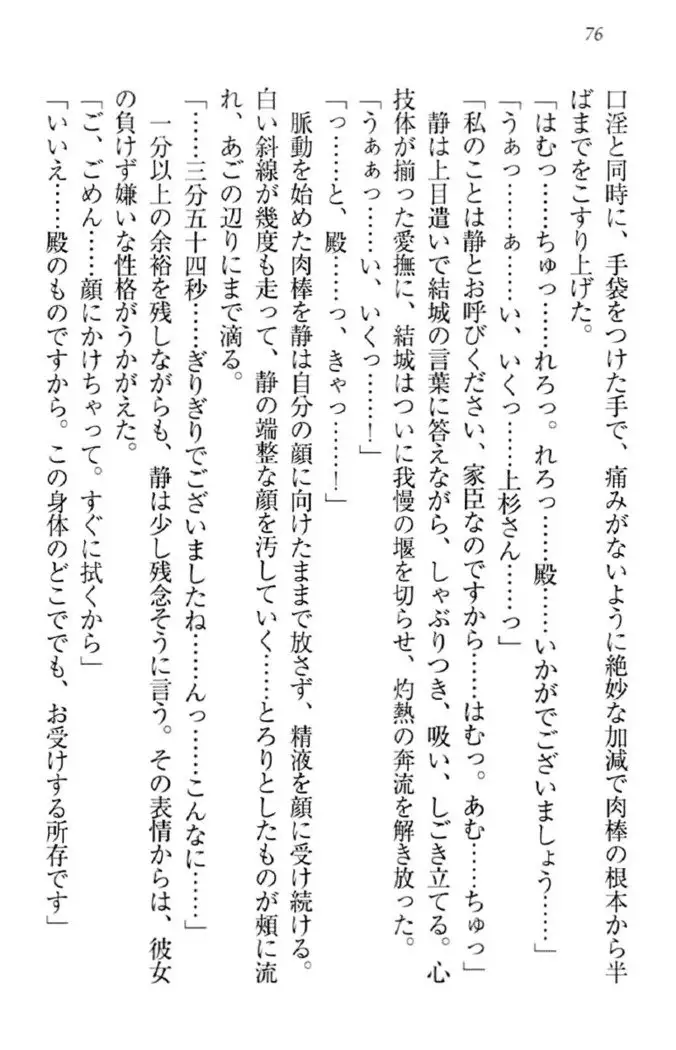 76
口淫と同時に、手袋をつけた手で、痛みがないように絶妙な加減で肉棒の根本から半
ばまでをこすり上げた。
「はむっ……ちゅっ……れろっ。れろっ……殿……いかがでございましょう……」
「うぁっ……ぁ……い、いくっ……上杉さん……っ」
「私のことは静とお呼びください、家臣なのですから……はむっ。あむ……ちゅっ」
静は上目遣いで結城の言葉に答えながら、しゃぶりつき、吸い、しごき立てる。心
技体が揃った愛撫に、結城はついに我慢の堰を切らせ、灼熱の奔流を解き放った。
「うぁぁっ……い、いくっ……！」
「っ……と、殿……っ、きゃっ……！」
脈動を始めた肉棒を静は自分の顔に向けたままで放さず、精液を顔に受け続ける。
白い斜線が幾度も走って、静の端整な顔を汚していく……とろりとしたものが頰に流
れ、あごの辺りにまで滴る。
「……三分五十四秒……ぎりぎりでございましたね……んっ……こんなに……」
一分以上の余裕を残しながらも、静は少し残念そうに言う。その表情からは、彼女
の負けず嫌いな性格がうかがえた。
「ご、ごめん……顔にかけちゃって。すぐに拭くから」
「いいえ……殿のものですから。この身体のどこででも、お受けする所存です」